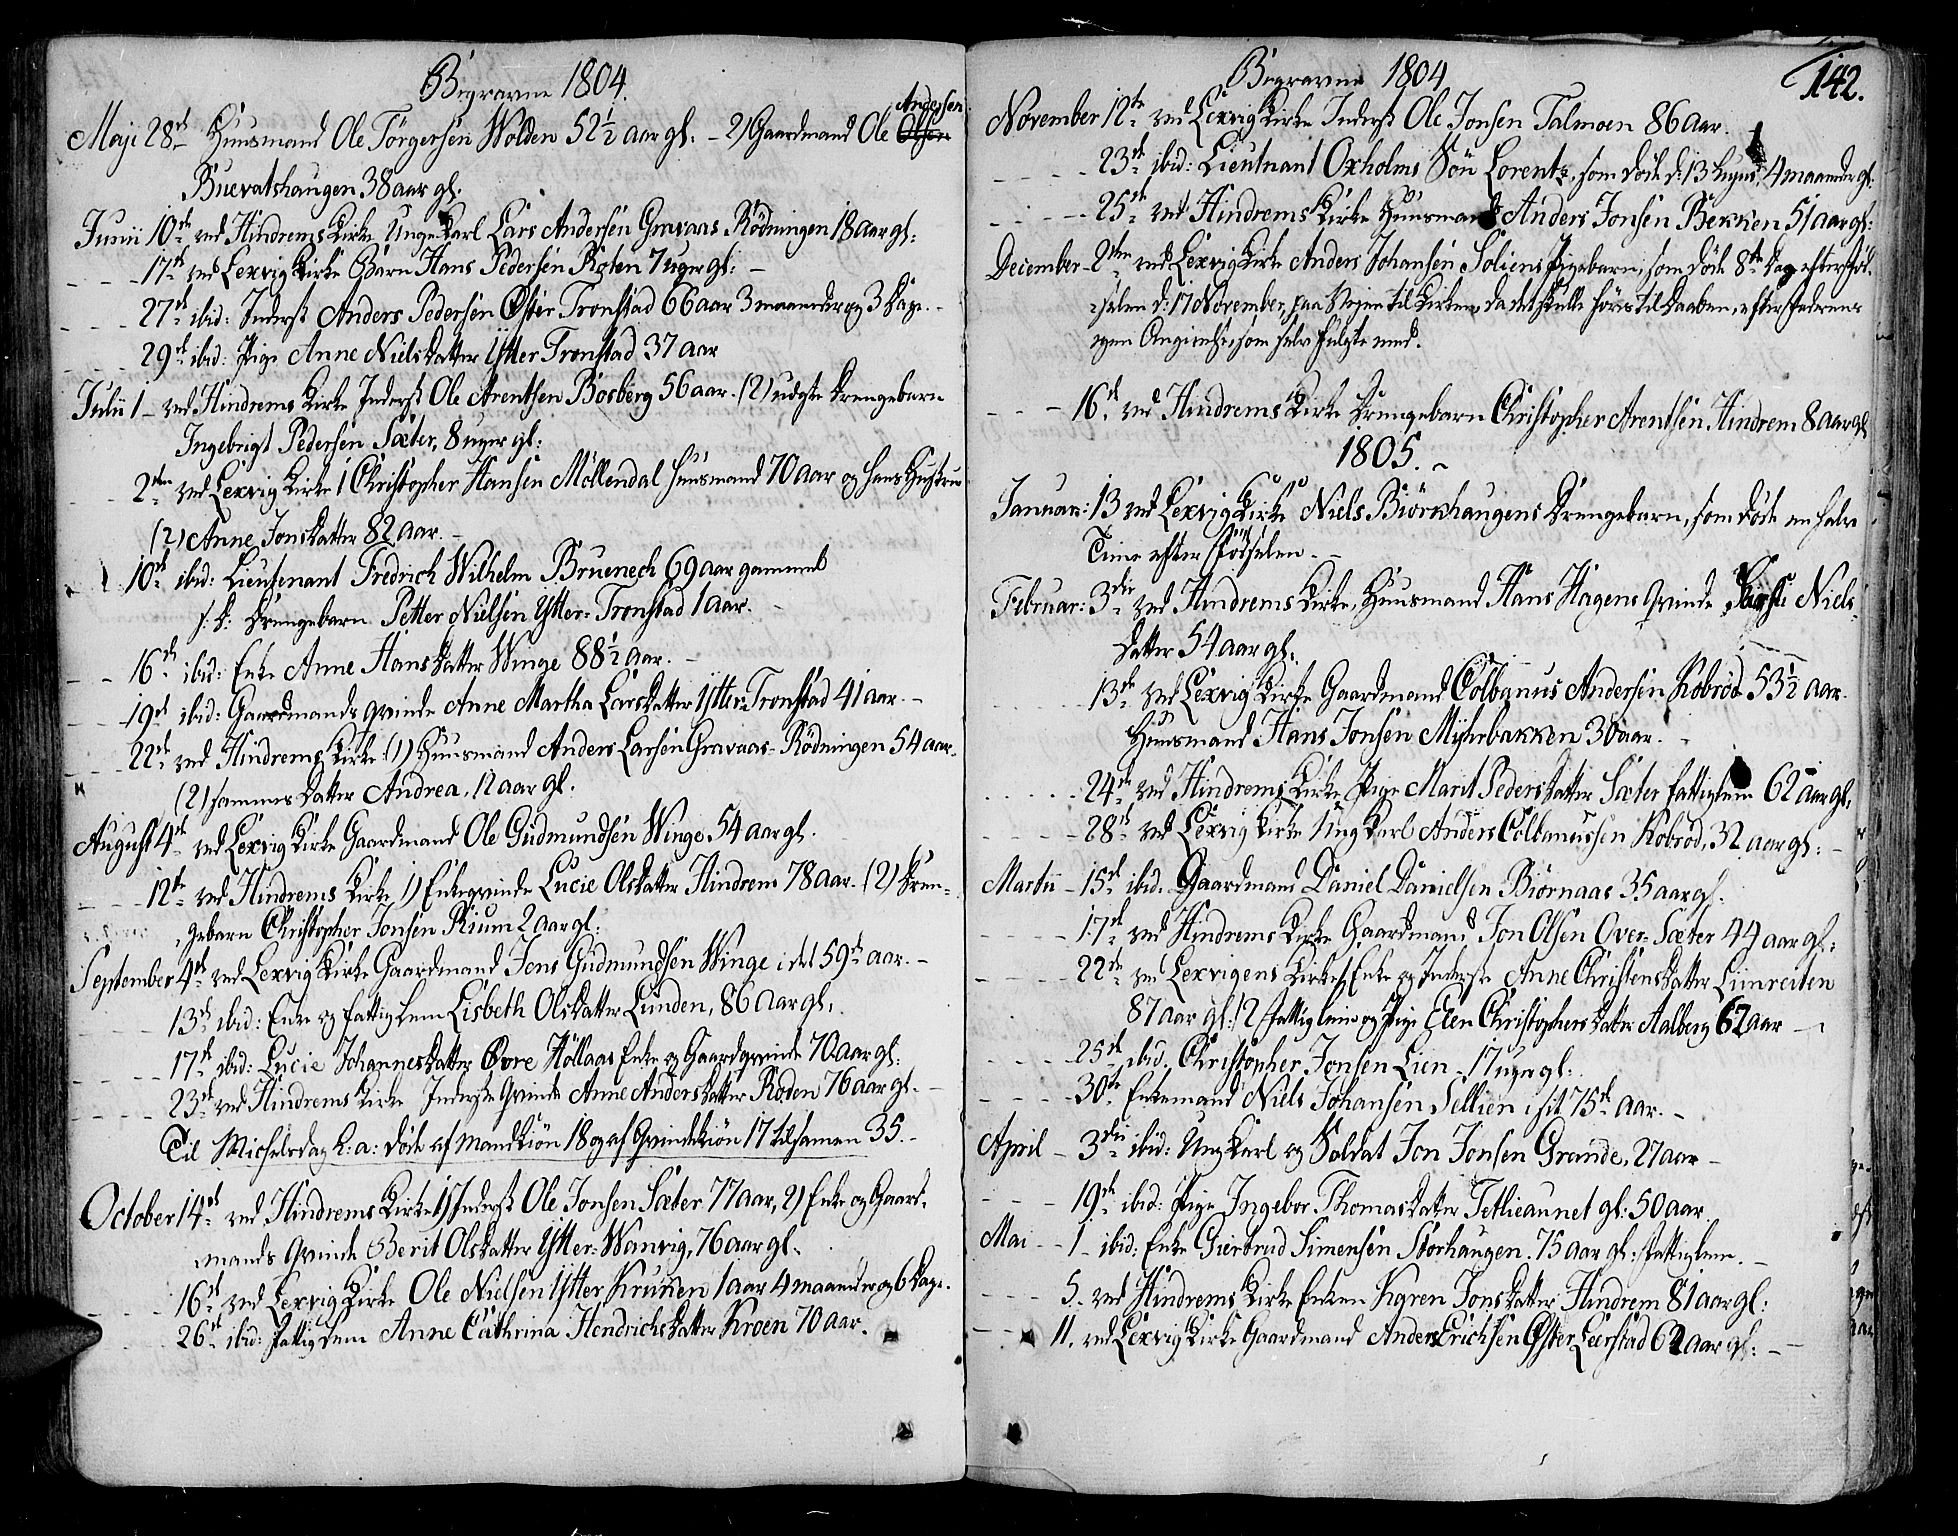 Begravne 1804.
Andersen
Maji 28de Huusmand Ole Törgersen Wolden 52½ aar gl: - 2) Gaardmand Ole Olsen
Buevatshaugen 38 aar gl.
Junii 10de ved Hindrems Kirke Unge Karl Lars Andersen Gravaas Rödningen 18 aar gl:
17de ved Lexvig Kirke Barn Hans Pedersen Roten 7 uger gl: -
27de ibid: Inderst Anders Pedersen Öster Tronstad 66 aar 3 maaneder og 3 Dage. -
29de ibid: Pige Anne Nielsdatter Ytter Tronstad 37 aar
Julii 1 - ved Hindrems Kirke Inderst Ole Arentsen Bosberg 56 aar. (2) udgte Drengebarn
Ingebrigt Pedersen Sæter, 8 uger gl:
2den ved Lexvig Kirke 1 Christopher Hansen Möllendal Huusmand 70 aar og hans Hustrue
(2) Anne Jonsdatter 82 aar. -
10de ibid: Lieutenant Fredrich Wilhelm Bruenech 69 aar gammel
s: d: Drengebarn Petter Nielsen Ytter-Tronstad 1 aar. -
16de ibid: Enke Anne Hansdatter Winge 88½ aar. -
19de ibid: Gaardmands Qvinde Anne Martha Larsdatter Ytter Tronstad 41 aar. -
22de ved Hindrems Kirke (1) Huusmand Anders Larsen Gravaas-Rödningen 54 aar.
(2) sammes Datter Andrea, 12 aar gl.
August 4de ved Lexvig Kirke Gaardmand Ole Gudmundsen Winge. 54 aar gl.
12te ved Hindrems Kirke 1) Enkeqvinde Lucie Olsdatter Hindrem 78 aar. (2) Dren-
gebarn Christopher Jonsen Rium 2 aar gl:
September 4de ved Lexvig Kirke Gaardmand Jens Gudmundsen Winge i det 59de aar. -
13de ibid: Enke og fattiglem Lisbeth Olsdatter Lunden, 86 aar gl.
17de ibid: Lucie Johannesdatter Övre Höllaas Enke og Gaardqvinde 70 aar gl:
23de ved Hindrems Kirke Inderste Qvinde Anne Andersdatter Roten 76 aar gl. -
Til Michelsdag h: a: döde af Mandkiön 18 og af Qvindekiön 17 tilsamen 35. -
October 14de ved Hindrems Kirke 1) Inderst Ole Jonsen Sæter 77 aar, 2) Enke og Gaard-
mands Qvinde Berit Olsdatter Ytter-Wanvig, 76 aar gl.
16de ved Lexvig Kirke Ole Nielsen Ytter Kruken 1 aar 4 maaneder og 6 Dage.
26de ibid: fattiglem Anne Cathrina Hendrichsdatter Kroen 70 aar.
142.
Begravne 1804
November 12te ved Lexvig Kirke Inderst Ole Jonsen Talmoen 86 aar.
23de ibid: Lieutnant Oxholms Sön Lorentz, som döde d: 13 hujus, 4 maaneder gl:
25de ved Hindrems Kirke Huusmand Anders Jonsen Bekken 51 aar gl:
December 2den ved Lexvig Kirke Anders Johansen Soliens Pigebarn, som döde 8te Dag efter Föd-
selen d: 17 November, paa Vejen til Kirken, da det skulle föres til Daaben, efter Faderens
egen Angivelse, som selv fulgte med.
16de ved Hindrems Kirke Drengebarn Christopher Arentsen Hindrem 8 aar gl
1805. -
Januar: 13 ved Lexvig Kirke Niels Biörkhaugens Drengebarn, som döde en halv
Time efter Födselen. -
Februar: 3die ved Hindrems Kirke, Huusmand Hans Hagens Qvinde Niels-
datter 54 aar gl.
13de ved Lexvig Kirke Gaardmand Colbanus Andersen Kobröd 53½ aar.
Huusmand Hans Jonsen Myhrbakken 30 aar. -
24de ved Hindrems Kirke Pige Marit Pedersdatter Sæter fattiglem 62 aar gl,
28de ved Lexvig Kirke Ung Karl Anders Colbanussen Kobröd, 32 aar gl: -
Martii - 15de ibid: Gaardmand Daniel Danielsen Biörnaas 35 aar gl.
17de ved Hindrems Kirke Gaardmand Jon Olsen Over-Sæter 44 aar gl:
22de ved Lexvigens Kirke 1 Enke og Inderste Anne Christensdatter Limreiten
87 aar gl: (2 fattiglem og Pige Elen Christophersdatter Aalberg 62 aar -
25de ibid. Christopher Jonsen Lien - 17 uger gl:
30te Enkemand Niels Johansen Sellien i sit 75de aar. -
April - 3die ibid: Ung Karl og Soldat Jon Jonsen Grande, 27 aar -
19de ibid: Pige Ingebor Thomasdatter Tetlieaunet gl: 50 aar.
Mai - 1 - ibid: Enke Giertrud Simensen Storhaugen. 75 aar gl: fattiglem. -
5. ved Hindrems Kirke Enken Karen Jonsdatter Hindrem 81 aar gl:
11. ved Lexvig Kirke Gaardmand Anders Erichsen Öster Leerstad 62 aar gl: -